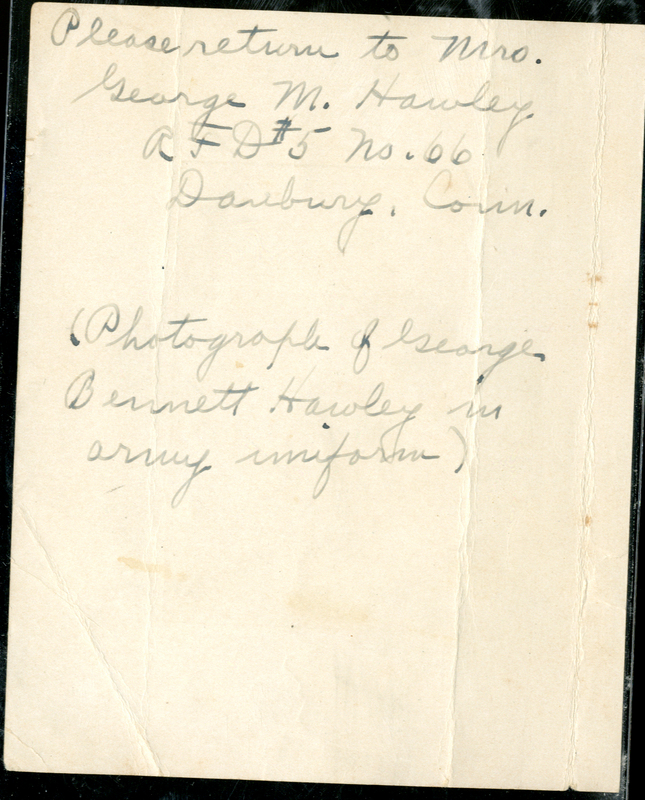 Please return to Mrs.
George M. Hawley
RFD #5 No. 66
Danbury, Conn.
(Photograph of George
Bennett Hawley in
army uniform)